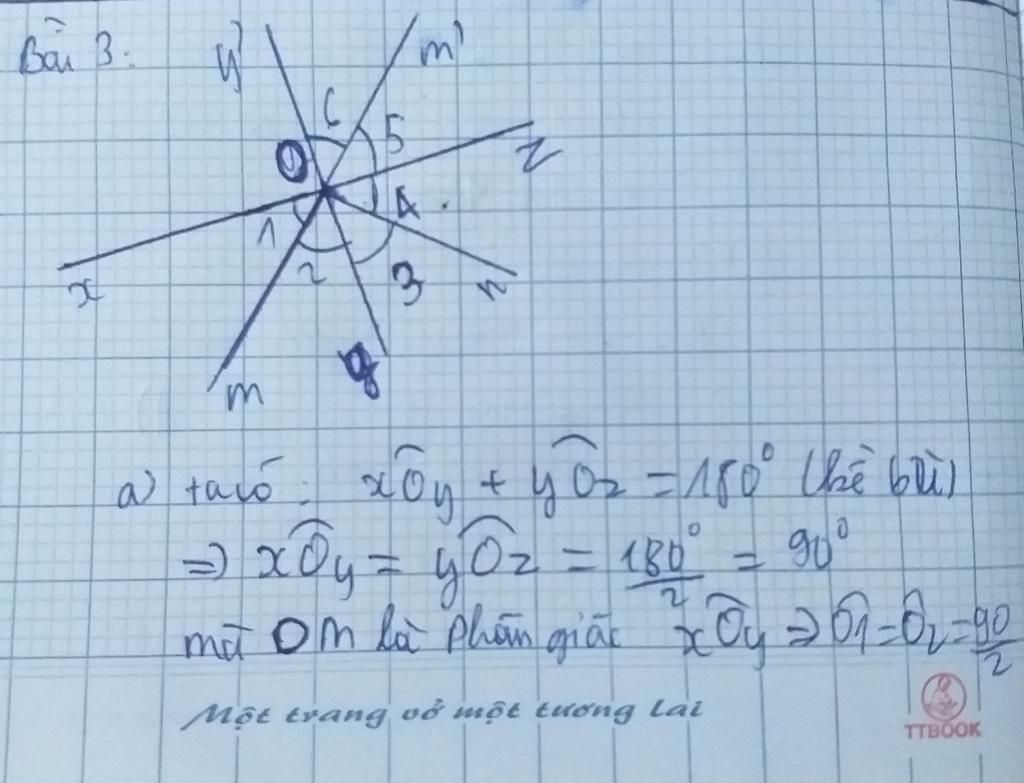 Bài 3:
y' m'
6 5
O z
1 4
x 2 3 n
m y
a) ta có: xÔy + yÔz = 180° (kề bù)
=> xÔy = yÔz = 180°/2 = 90°
mà OM là phân giác xÔy => Ô1 = Ô2 = 90/2
Một trang vở một tương lai
TTBOOK